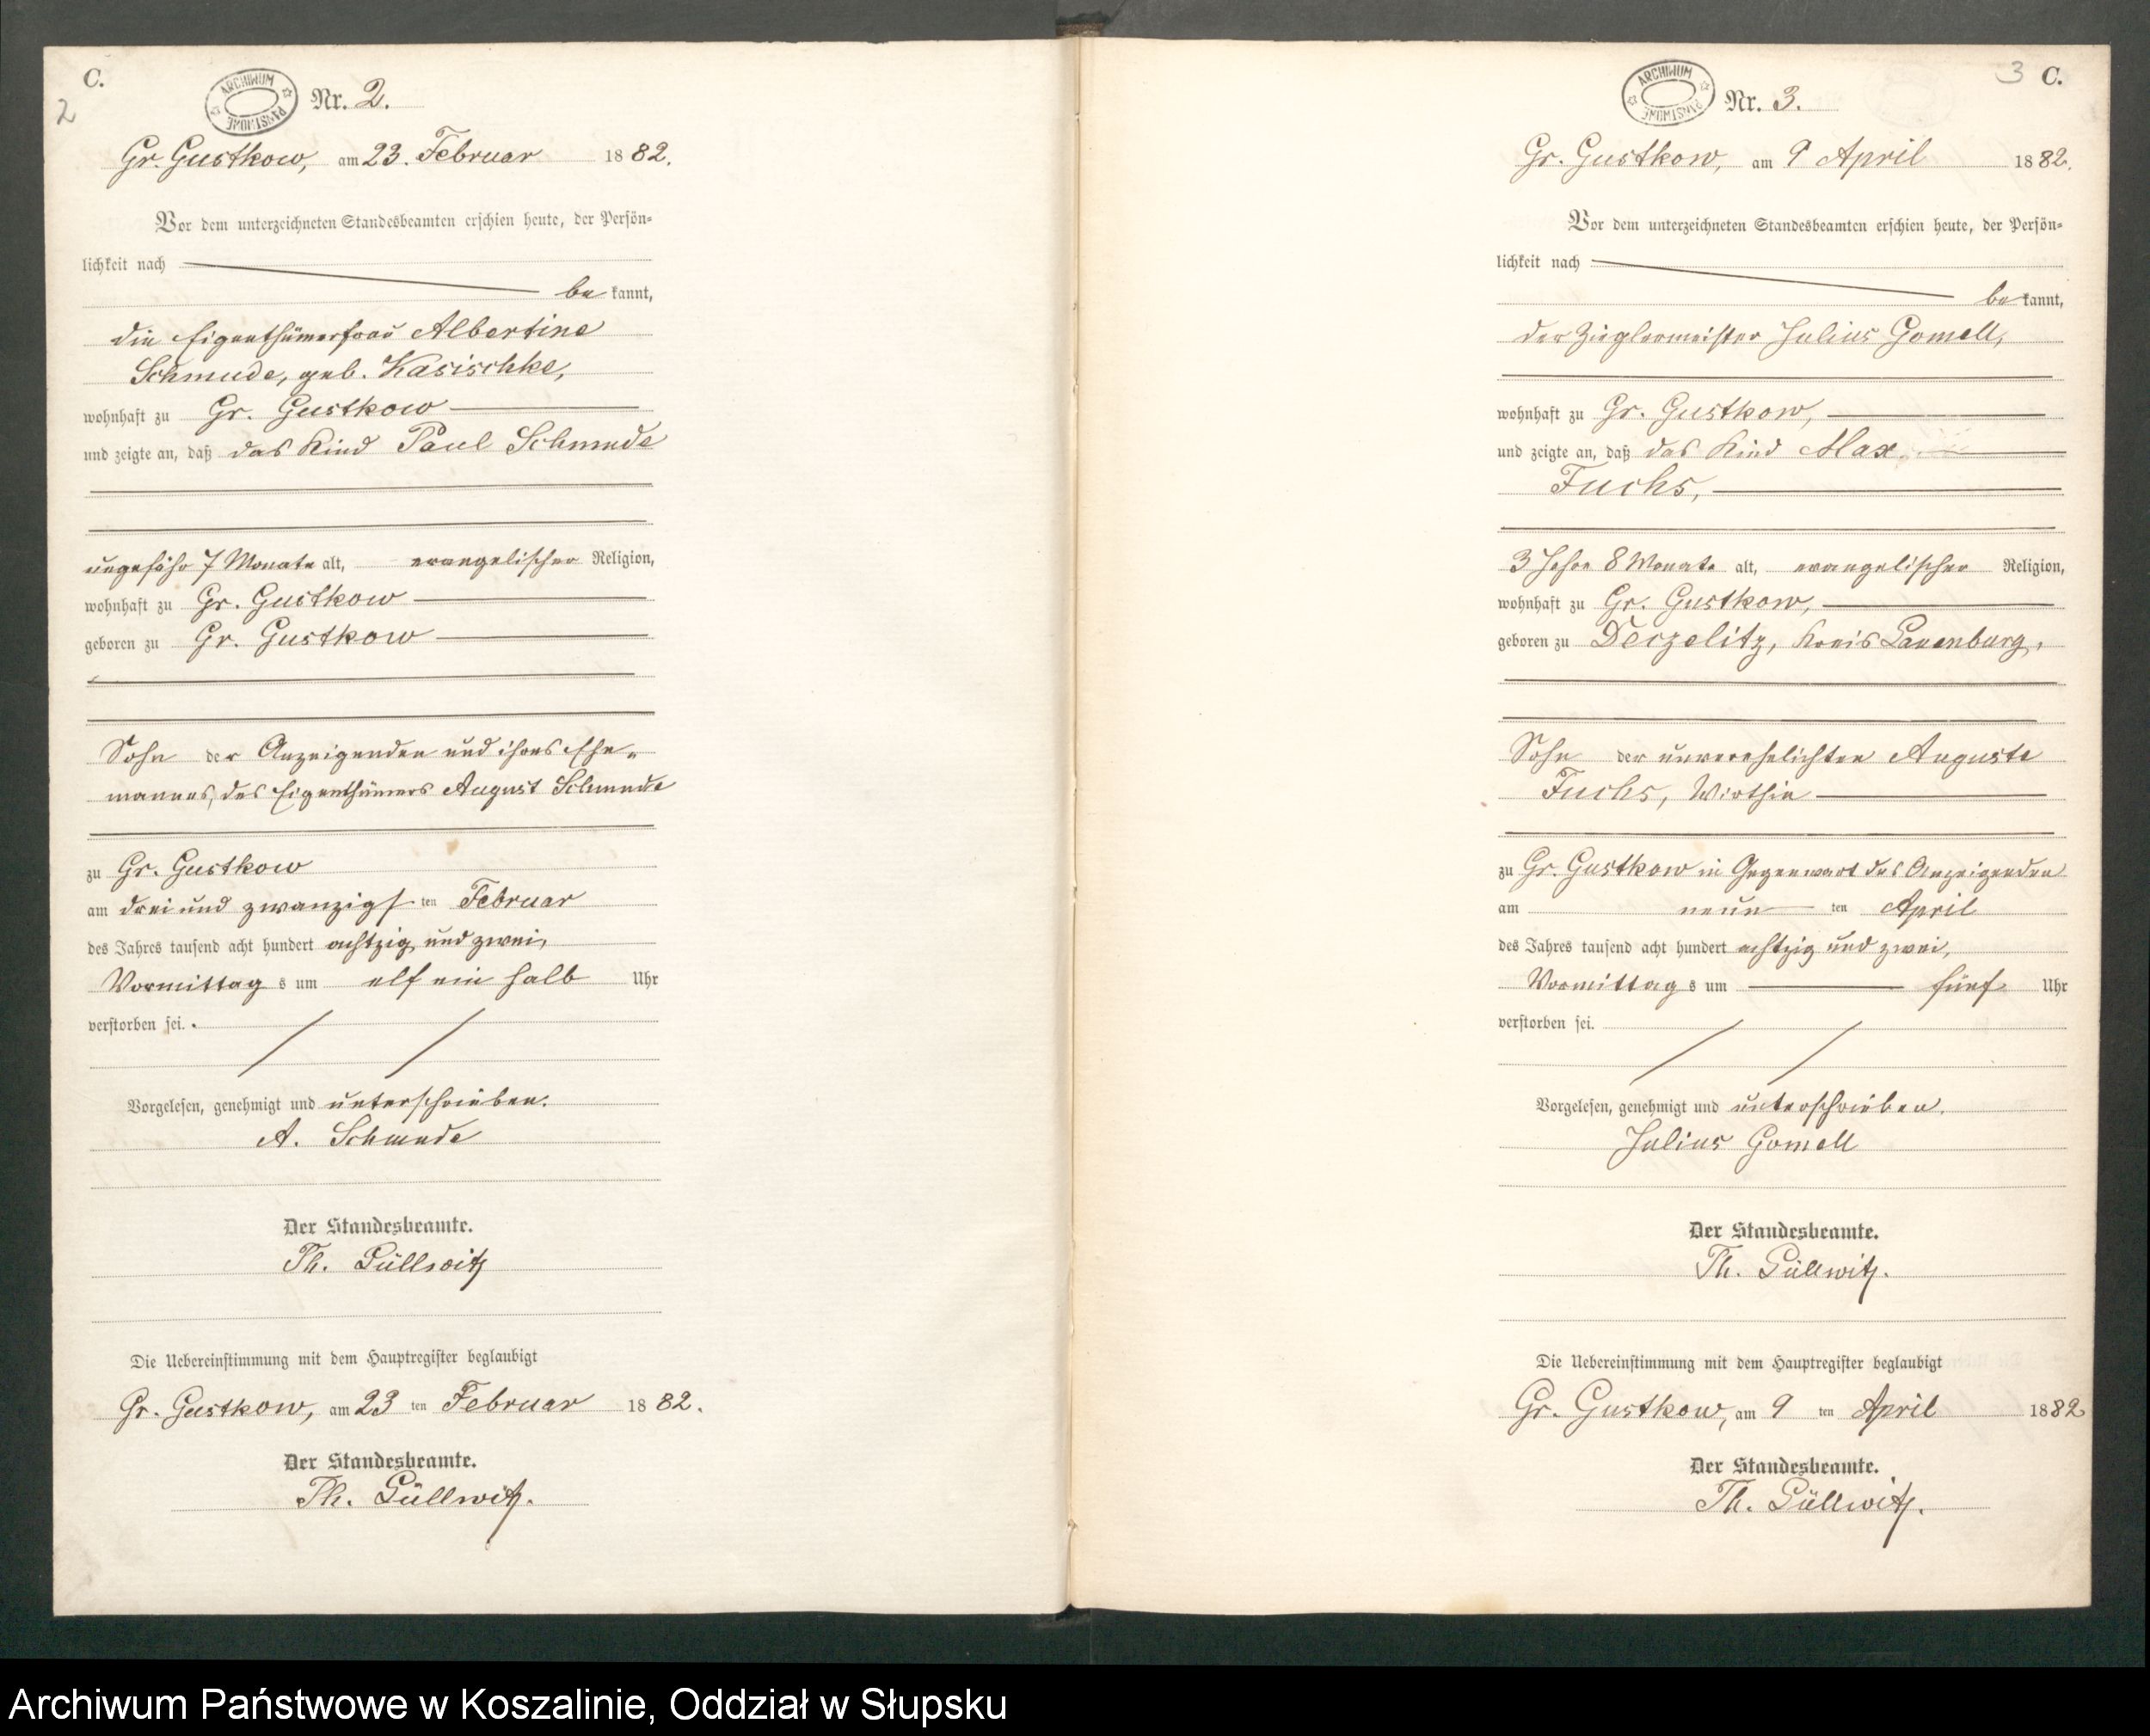 C.
2
ARCHIWUM PAŃSTWOWE
Nr. 2.
Gr. Gustkow, am 23. Februar 1882.
Vor dem unterzeichneten Standesbeamten erschien heute, der Persön-
lichkeit nach
be kannt,
die Eigenthümerfrau Albertine
Schmude, geb. Kasischke,
wohnhaft zu Gr. Gustkow
und zeigte an, daß das Kind Paul Schmude
ungefähr 7 Monate alt, evangelischer Religion,
wohnhaft zu Gr. Gustkow
geboren zu Gr. Gustkow
Sohn der Anzeigenden und ihres Ehe-
mannes, des Eigenthümers August Schmude
zu Gr. Gustkow
am drei und zwanzigs ten Februar
des Jahres tausend acht hundert achtzig und zwei,
Vormittag s um elf ein halb Uhr
verstorben sei.
Vorgelesen, genehmigt und unterschrieben.
A. Schmude
Der Standesbeamte.
Th. Güllwitz
Die Uebereinstimmung mit dem Hauptregister beglaubigt
Gr. Gustkow, am 23 ten Februar 1882.
Der Standesbeamte.
Th. Güllwitz.
3 C.
ARCHIWUM PAŃSTWOWE
Nr. 3.
Gr. Gustkow, am 9 April 1882.
Vor dem unterzeichneten Standesbeamten erschien heute, der Persön-
lichkeit nach
be kannt,
der Zieglermeister Julius Gomell,
wohnhaft zu Gr. Gustkow,
und zeigte an, daß das Kind Max
Fuchs,
3 Jahre 8 Monate alt, evangelischer Religion,
wohnhaft zu Gr. Gustkow,
geboren zu Dzezelitz, Kreis Lauenburg,
Sohn der unverehelichten Auguste
Fuchs, Wirthin
zu Gr. Gustkow in Gegenwart des Anzeigenden
am neun ten April
des Jahres tausend acht hundert achtzig und zwei,
Vormittag s um fünf Uhr
verstorben sei.
Vorgelesen, genehmigt und unterschrieben.
Julius Gomell
Der Standesbeamte.
Th. Güllwitz.
Die Uebereinstimmung mit dem Hauptregister beglaubigt
Gr. Gustkow, am 9 ten April 1882
Der Standesbeamte.
Th. Güllwitz.
Archiwum Państwowe w Koszalinie, Oddział w Słupsku